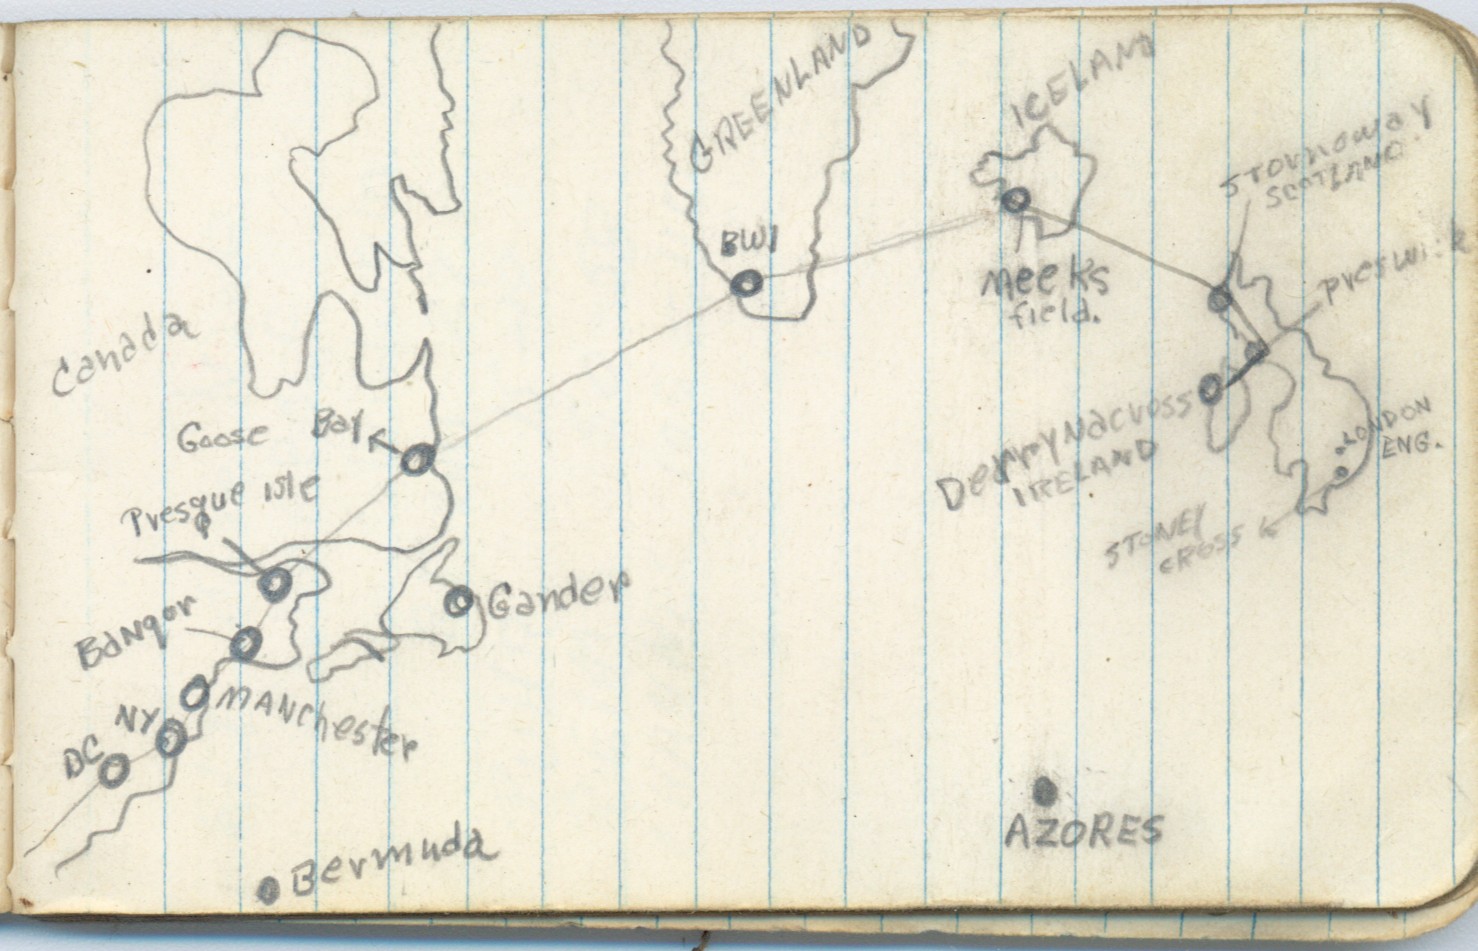 GREENLAND
ICELAND
Stornoway
SCOTLAND
BW1
Preswick
Meeks
field.
Canada
Goose Bay
Derrynacross
IRELAND
LONDON
ENG.
Presque isle
STONEY
CROSS
Gander
Bangor
MANchester
NY
DC
AZORES
Bermuda